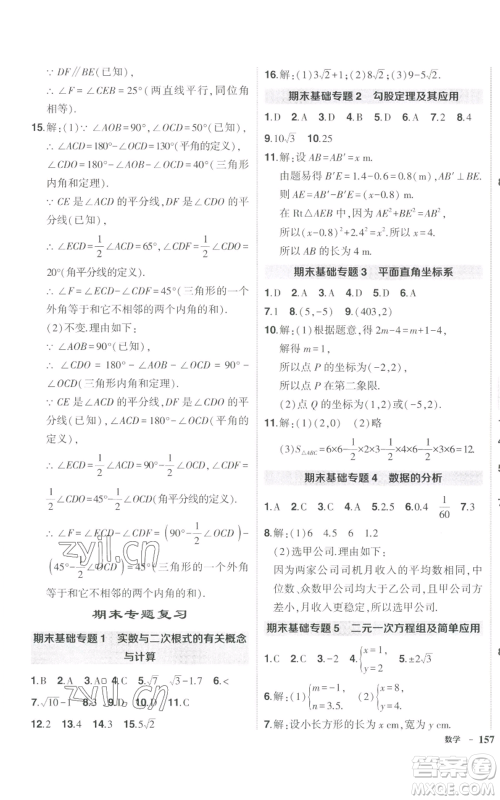 ∵ DF∥BE(已知),
∴ ∠F=∠CEB=25°(两直线平行,同位角
相等).
15.解:(1)∵ ∠AOB=90°,∠OCD=50°(已知),
∴ ∠ACD=180°-∠OCD=130°(平角的定义),
∠CDO=180°-∠AOB-∠OCD=40°(三角形
内角和定理).
∵ CE是∠ACD的平分线,DF是∠CDO的平
分线(已知),
∴ ∠ECD=1/2∠ACD=65°,∠CDF=1/2∠CDO
=20°(角平分线的定义).
∴ ∠F=∠ECD-∠CDF=45°(三角形的一个
外角和它不相邻的两个内角的和).
(2)不变.理由如下:
∵ ∠AOB=90°(已知),
∴ ∠CDO=180°-∠AOB-∠OCD=90°-
∠OCD(三角形内角和定理).
∵ CE是∠ACD的平分线,DF是∠CDO的
平分线(已知),∠ACD=180°-∠OCD(平角
的定义),
∴ ∠ECD=1/2∠ACD=90°-1/2∠OCD,∠CDF=
1/2∠CDO=45°-1/2∠OCD(角平分线的定义).
∴ ∠F=∠ECD-∠CDF=(90°-1/2∠OCD)
-(45°-1/2∠OCD)=45°(三角形的一个外角
和等于它不相邻的两个内角的和).
期末专题复习
期末基础专题1 实数与二次根式的有关概念
与计算
1.B 2.D 3.A 4.C 5.B 6.<
7.√10-1 8.0 9. 10.√3-1 11.
12.2 13.7 14.4 15.5√2
16.解:(1)3√2+1 (2)8 (3)9√2
期末基础专题2 勾股定理及其应用
1.D 2.C 3.D 4.A 5.A 6.D 7.4 8.24
9.10√3 10.25
11.解:设AB=AB′=x m.
由题易得B′E=1.4-0.6=0.8(m),
则AE=AB-BE=(x-0.8)m.
在Rt△AEB′中,AE²+B′E²=AB′²,
所以(x-0.8)²+2.4²=x²,解得x=4.
所以AB的长为4 m.
期末基础专题3 平面直角坐标系
1.D 2.C 3.B 4.D 5.A 6.A
7.1 8.(5,-5) 9.(403,2)
10.解:(1)根据题意,得2m-4=m-1+4,
解得m=-1,
所以点P的坐标为(-2,2),
所以点P在第二象限.
(2)点Q的坐标为(-2,2)
11.解:(1)(2,0) (2)略
(3)S△ABC=6×6-1/2×4×6-1/2×2×4-1/2×2×6
期末基础专题4 数据的分析
1.A 2.C 3.A 4.A 5.2.5 6.0.4 7.1/60
8.4
9.解:(1)6 4.5 6 1.2
(2)选甲公司.理由如下:
因为两家公司司机月收入的平均数相同,
中位数、众数甲公司均大于乙公司,且甲公
司方差小,更稳定,所以选甲公司.
期末基础专题5 二元一次方程组及简单应用
1.B 2.C 3.-2 4.{x=1, y=2 5.A
6.解:(1){m=5, n=3.5. (2){x=8, y=2.
7.解:设小长方形的长为x cm,宽为y cm,
数学 - 157
zyjl.cn